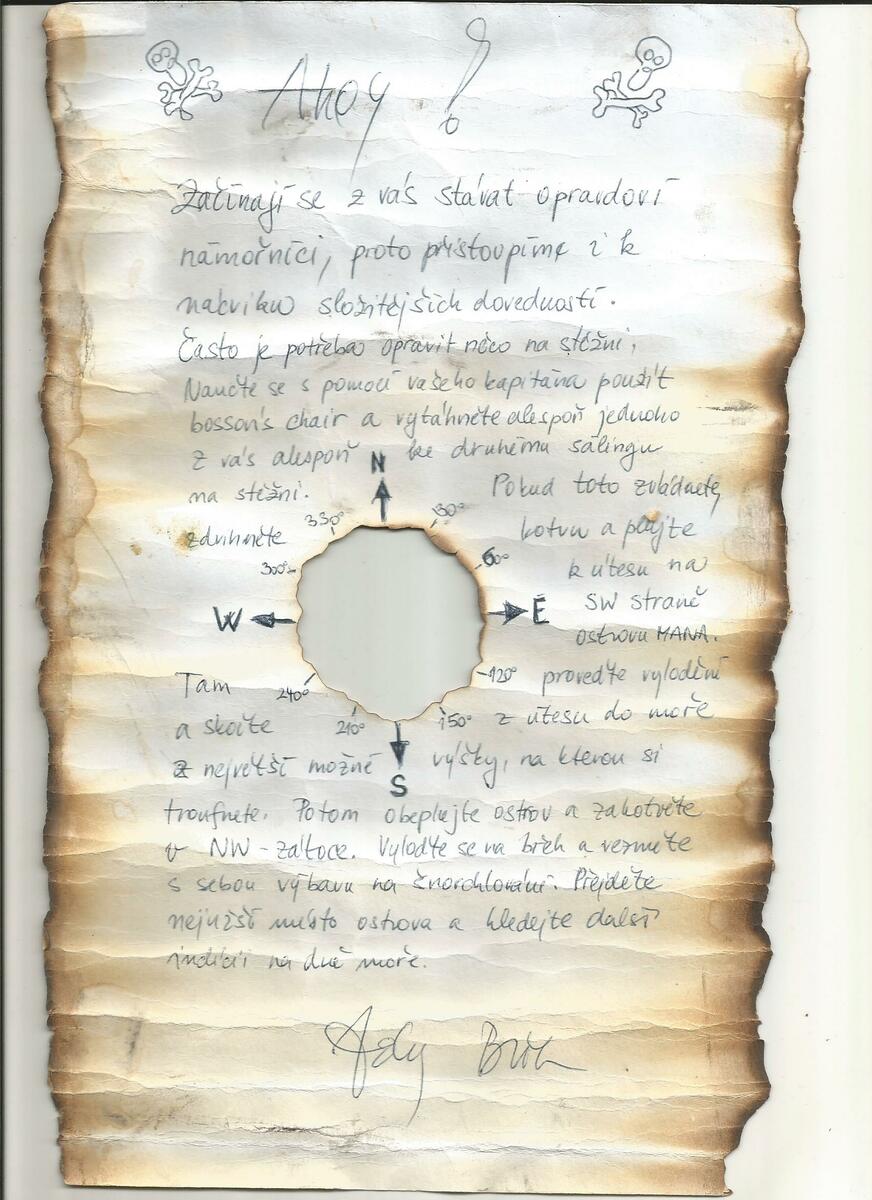 Ahoy !
Začínají se z vás stávat opravdoví
námořníci, proto přistoupíme i k
nácviku složitějších dovedností.
Často je potřeba opravit něco na stěžni,
Naučte se s pomocí vašeho kapitána použít
bosson's chair a vytáhněte alespoň jednoho
z vás alespoň ke druhému sálingu
na stěžni. Pokud toto zvládnete,
zdvihněte kotvu a plujte
k útesu na
SW straně
ostrovu MANA.
N
30°
60°
E
120°
150°
S
210°
240°
W
300°
330°
Tam proveďte vylodění
a skočte z útesu do moře
z největší možné výšky, na kterou si
troufnete. Potom obeplujte ostrov a zakotvěte
v NW-zátoce. Vyloďte se na břeh a vezměte
s sebou výbavu na šnorchlování. Přejděte
nejužší místo ostrova a hledejte další
indícii na dně moře.